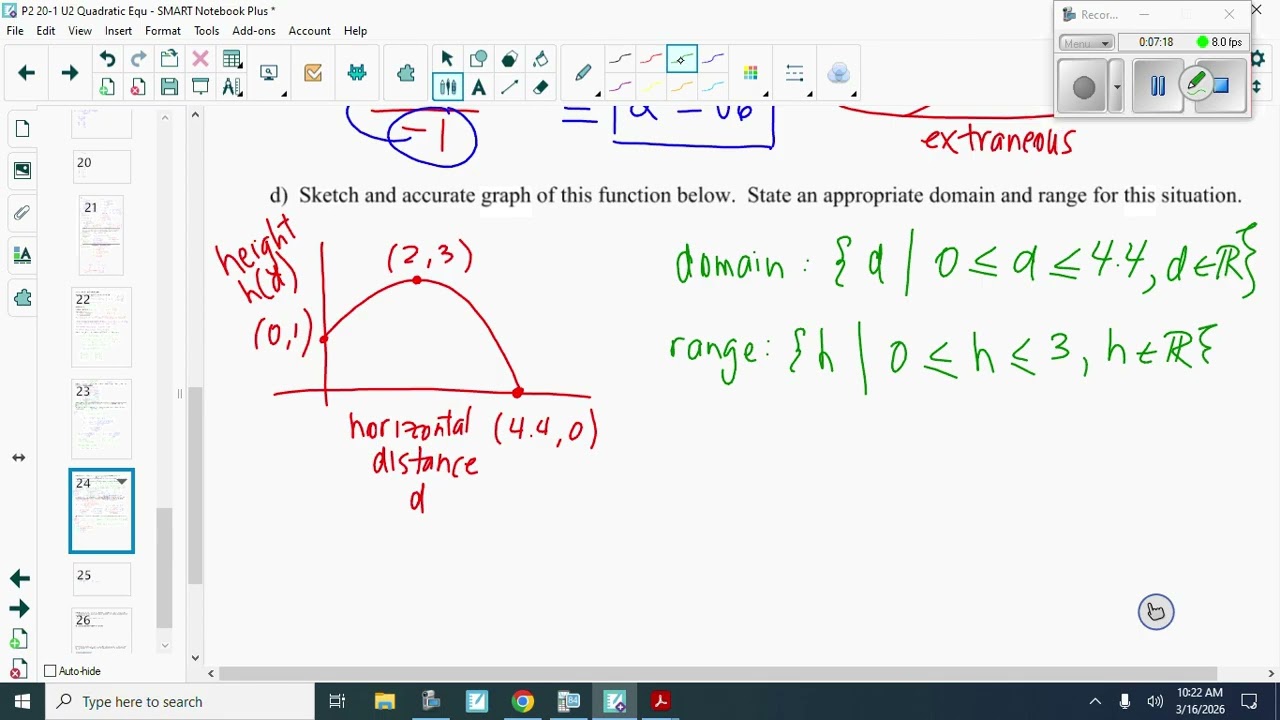 P2 20-1 U2 Quadratic Equ - SMART Notebook Plus *
File Edit View Insert Format Tools Add-ons Account Help
Recor...
Menu
0:07:18
8.0 fps
-1
=
extraneous
d) Sketch and accurate graph of this function below. State an appropriate domain and range for this situation.
height
h(d)
(2,3)
(0,1)
horizontal
distance
d
(4.4,0)
domain: {d | 0 ≤ d ≤ 4.4, d∈ℝ}
range: {h | 0 ≤ h ≤ 3, h∈ℝ}
20
21
22
23
24
25
26
Auto-hide
Type here to search
10:22 AM
3/16/2026